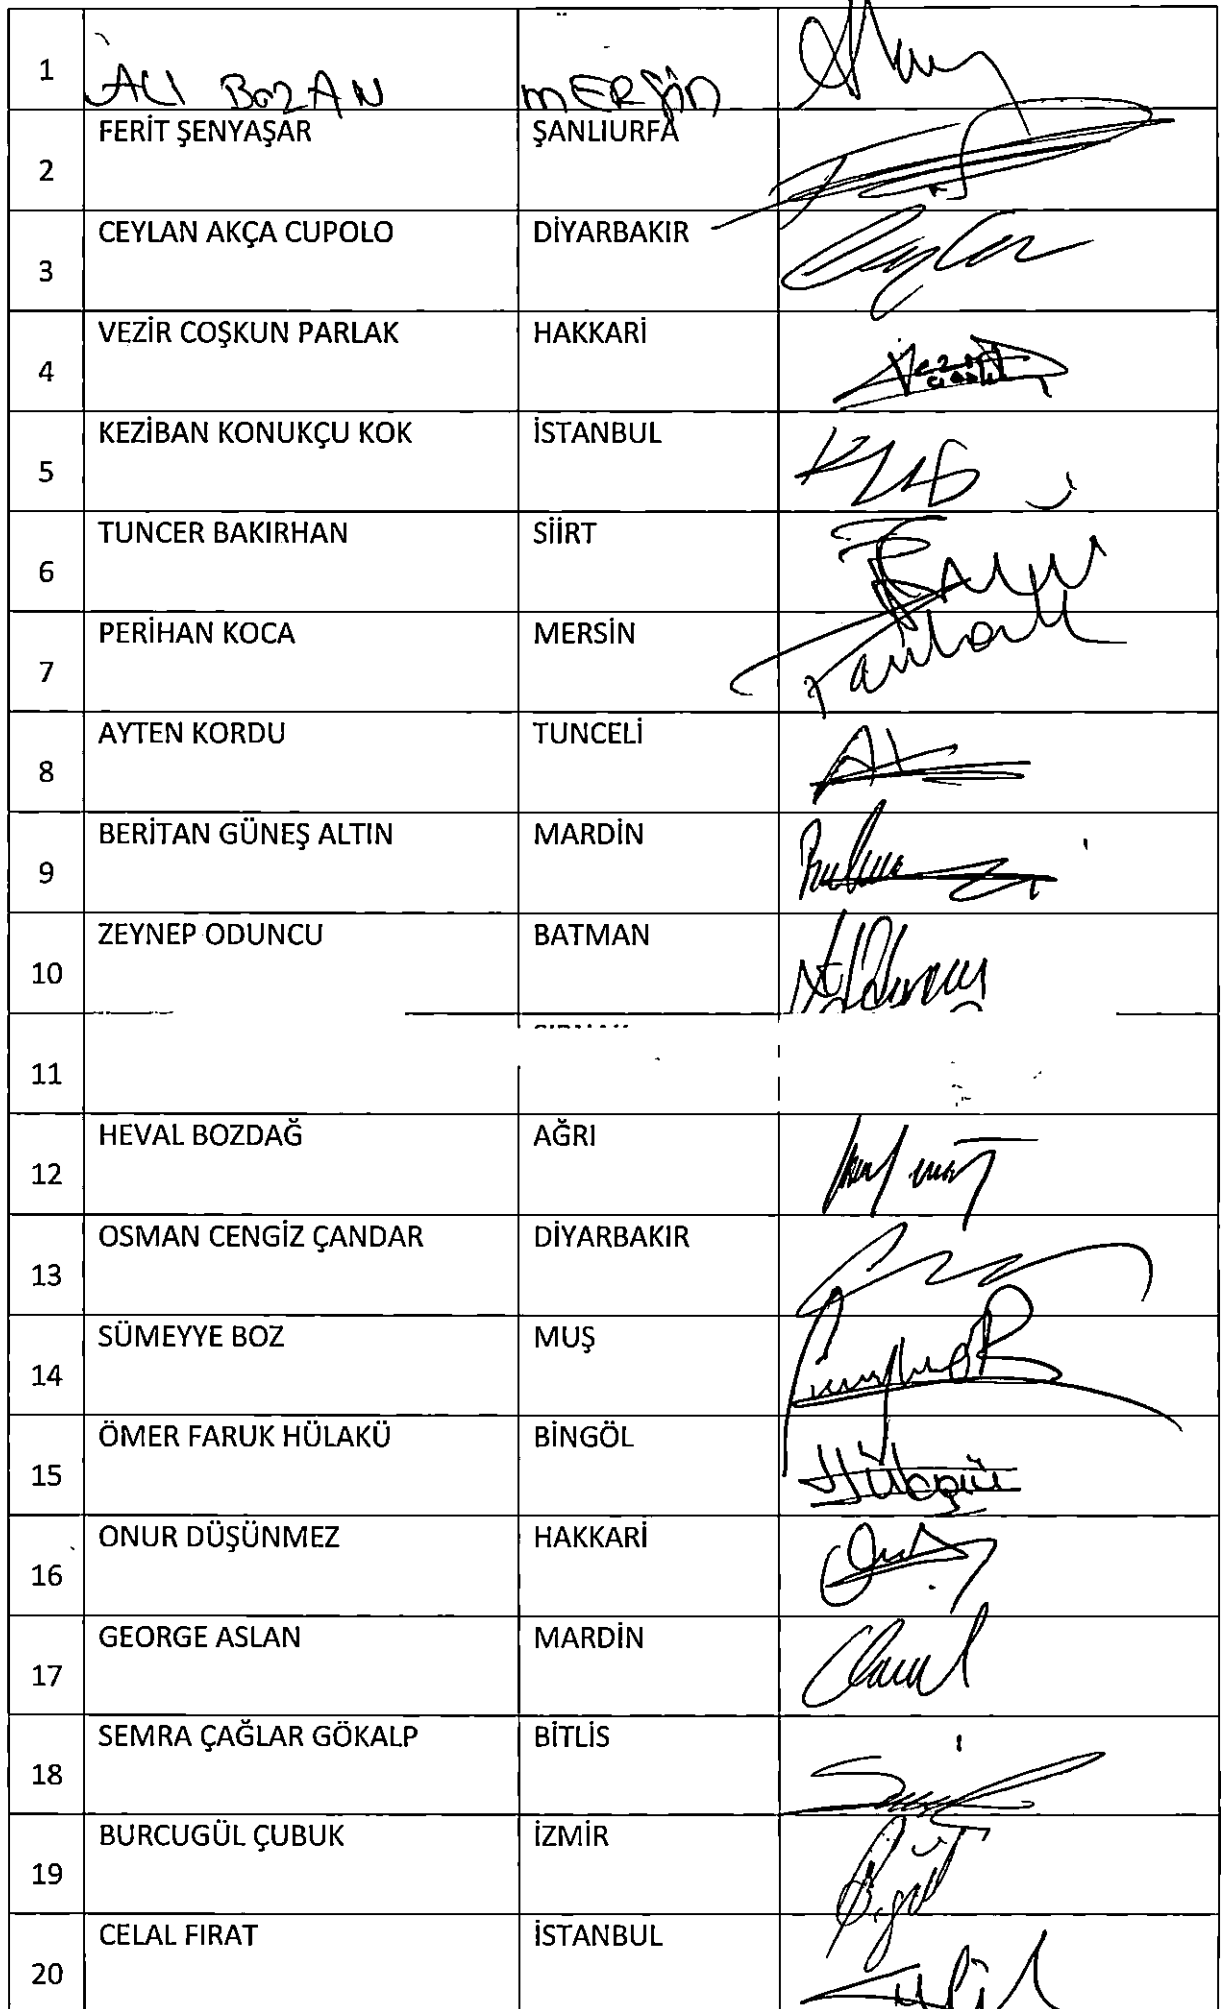 1 ALİ BOZAN MERSİN
2 FERİT ŞENYAŞAR ŞANLIURFA
3 CEYLAN AKÇA CUPOLO DİYARBAKIR
4 VEZİR COŞKUN PARLAK HAKKARİ
5 KEZİBAN KONUKÇU KOK İSTANBUL
6 TUNCER BAKIRHAN SİİRT
7 PERİHAN KOCA MERSİN
8 AYTEN KORDU TUNCELİ
9 BERİTAN GÜNEŞ ALTIN MARDİN
10 ZEYNEP ODUNCU BATMAN
11
12 HEVAL BOZDAĞ AĞRI
13 OSMAN CENGİZ ÇANDAR DİYARBAKIR
14 SÜMEYYE BOZ MUŞ
15 ÖMER FARUK HÜLAKÜ BİNGÖL
16 ONUR DÜŞÜNMEZ HAKKARİ
17 GEORGE ASLAN MARDİN
18 SEMRA ÇAĞLAR GÖKALP BİTLİS
19 BURCUGÜL ÇUBUK İZMİR
20 CELAL FIRAT İSTANBUL